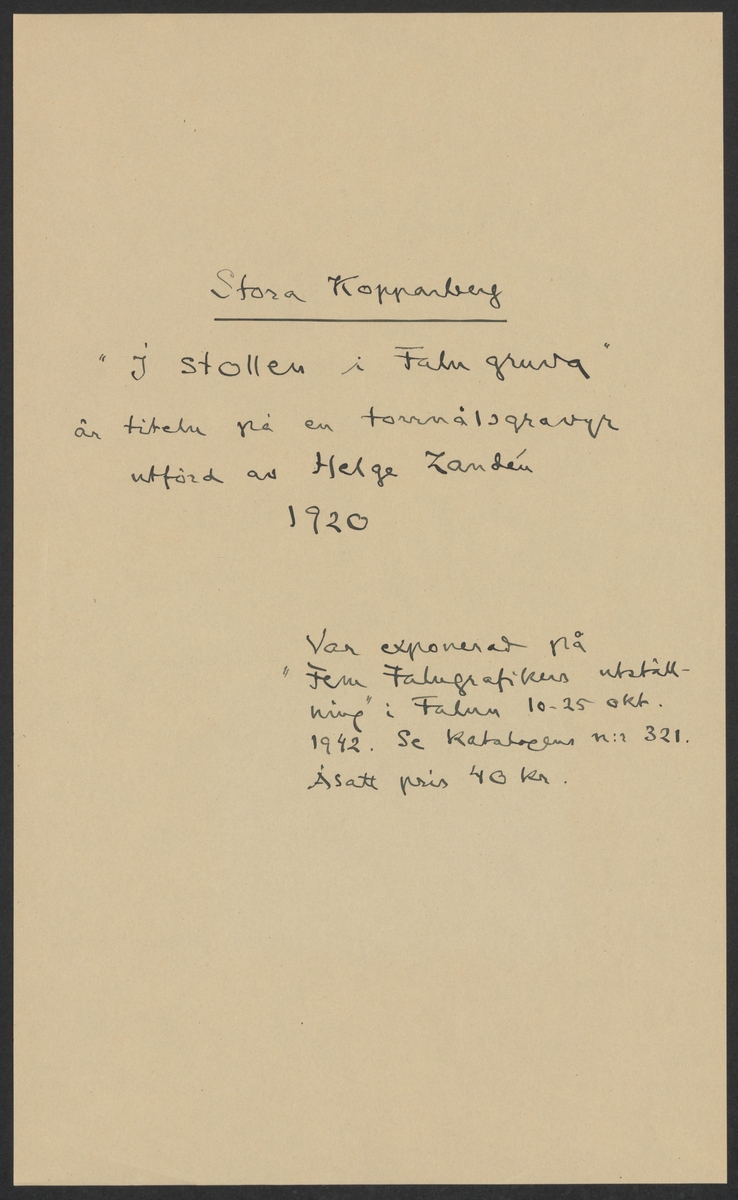 Stora Kopparberg
"I stollen i Falu gruva"
är titeln på en torrnålsgravyr
utförd av Helge Zandén
1920
Var exponerad på
"Fem Falugrafikers utställ-
ning" i Falun 10-25 okt.
1942. Se katalogens n:r 321.
Åsatt pris 40 kr.